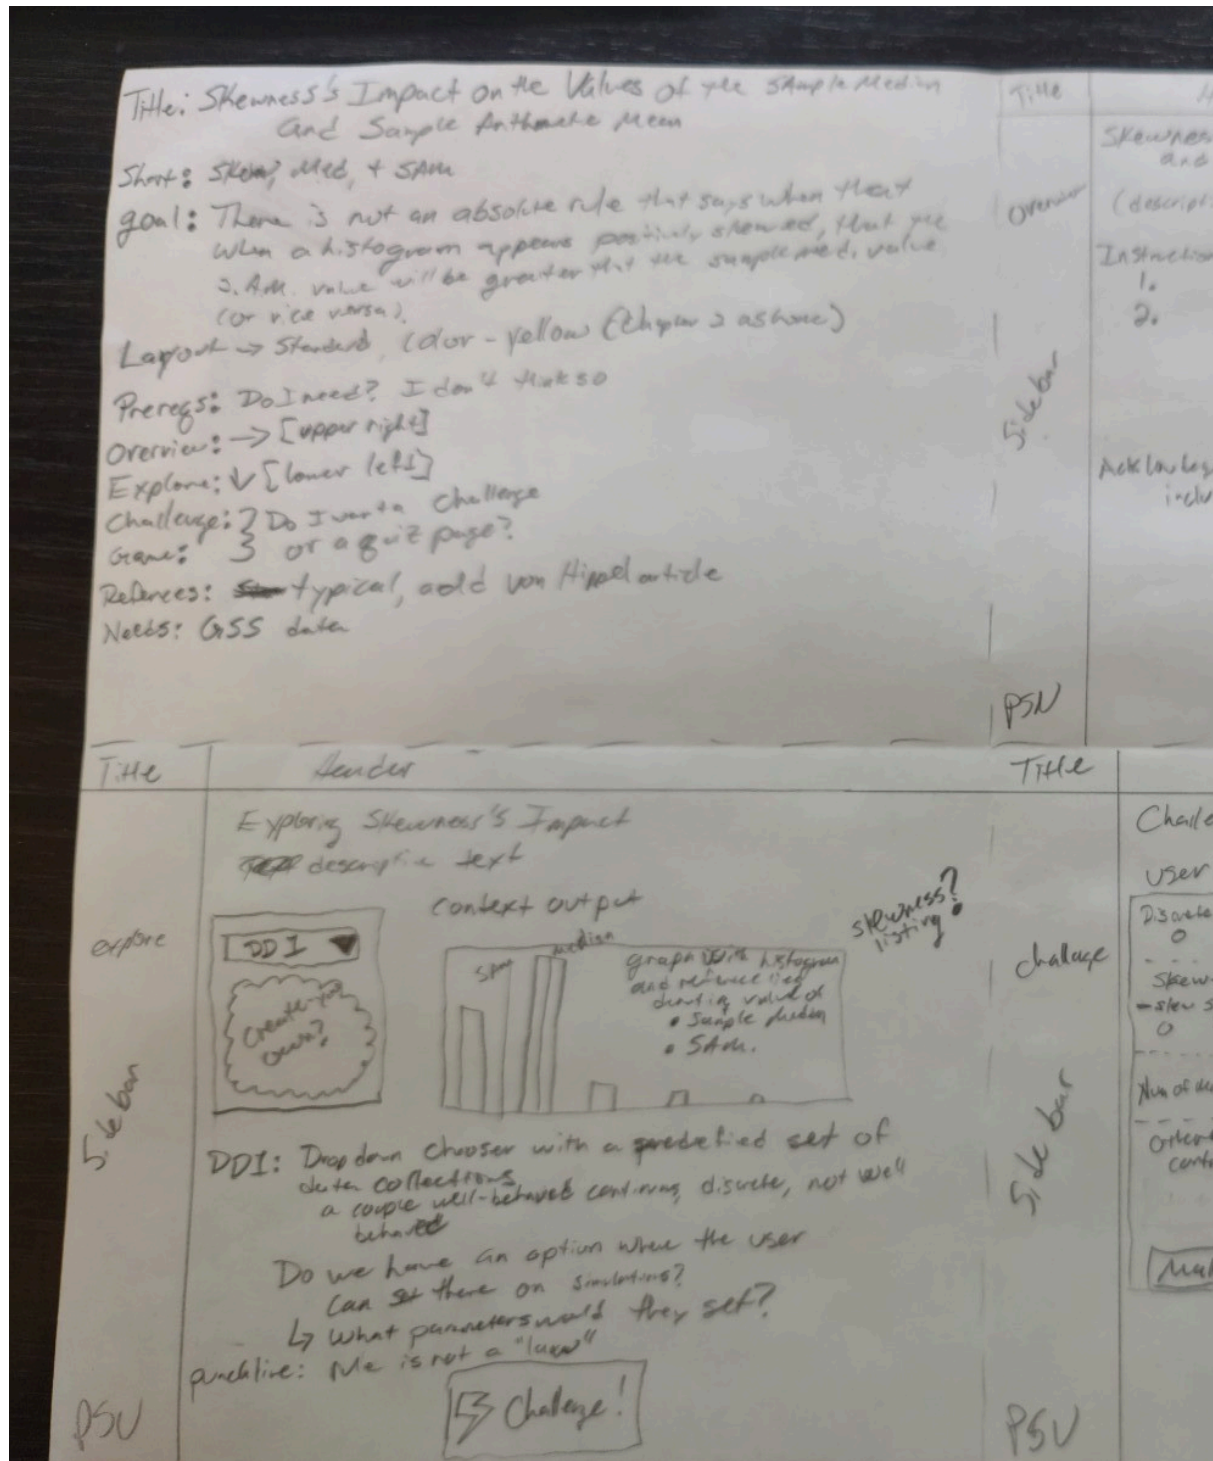 Title: Skewness's Impact on the Values of the Sample Median
and Sample Arithmetic Mean
Short: Skew, Med, + SAM
goal: There is not an absolute rule that says when that
when a histogram appears positively skewed, that the
S. AM. value will be greater that the sample med. value
(or vice versa).
Layout → Standard, Color - yellow (Chapter 2 as home)
Prereqs: Do I need? I don't think so
Overview: → [upper right]
Explore: ↓ [lower left]
Challenge: } Do I want a challenge
Game: } or a quiz page?
References: typical, add von Hippel article
Needs: GSS data
Title
Skewness
and
Overview
(descripti
Instruction
1.
2.
Side bar
Acknowledg
inclu
PSU
Title
Header
Exploring Skewness's Impact
descriptive text
context output
skewness?
listing
explore
DD I ▼
Create-your
own?
SAM
median
graph with histogram
and reference lines
denoting value of
• Sample Median
• SAM.
Side bar
DDI: Drop down chooser with a predefied set of
data collections
a couple well-behaved continuous, discrete, not well
behaved
Do we have an option where the user
can set there on simulations?
↳ What parameters would they set?
punchline: rule is not a "law"
Challenge!
PSU
Title
Challe
user
Discrete
challenge
Skew
-skew s
Num of
Side bar
PSU